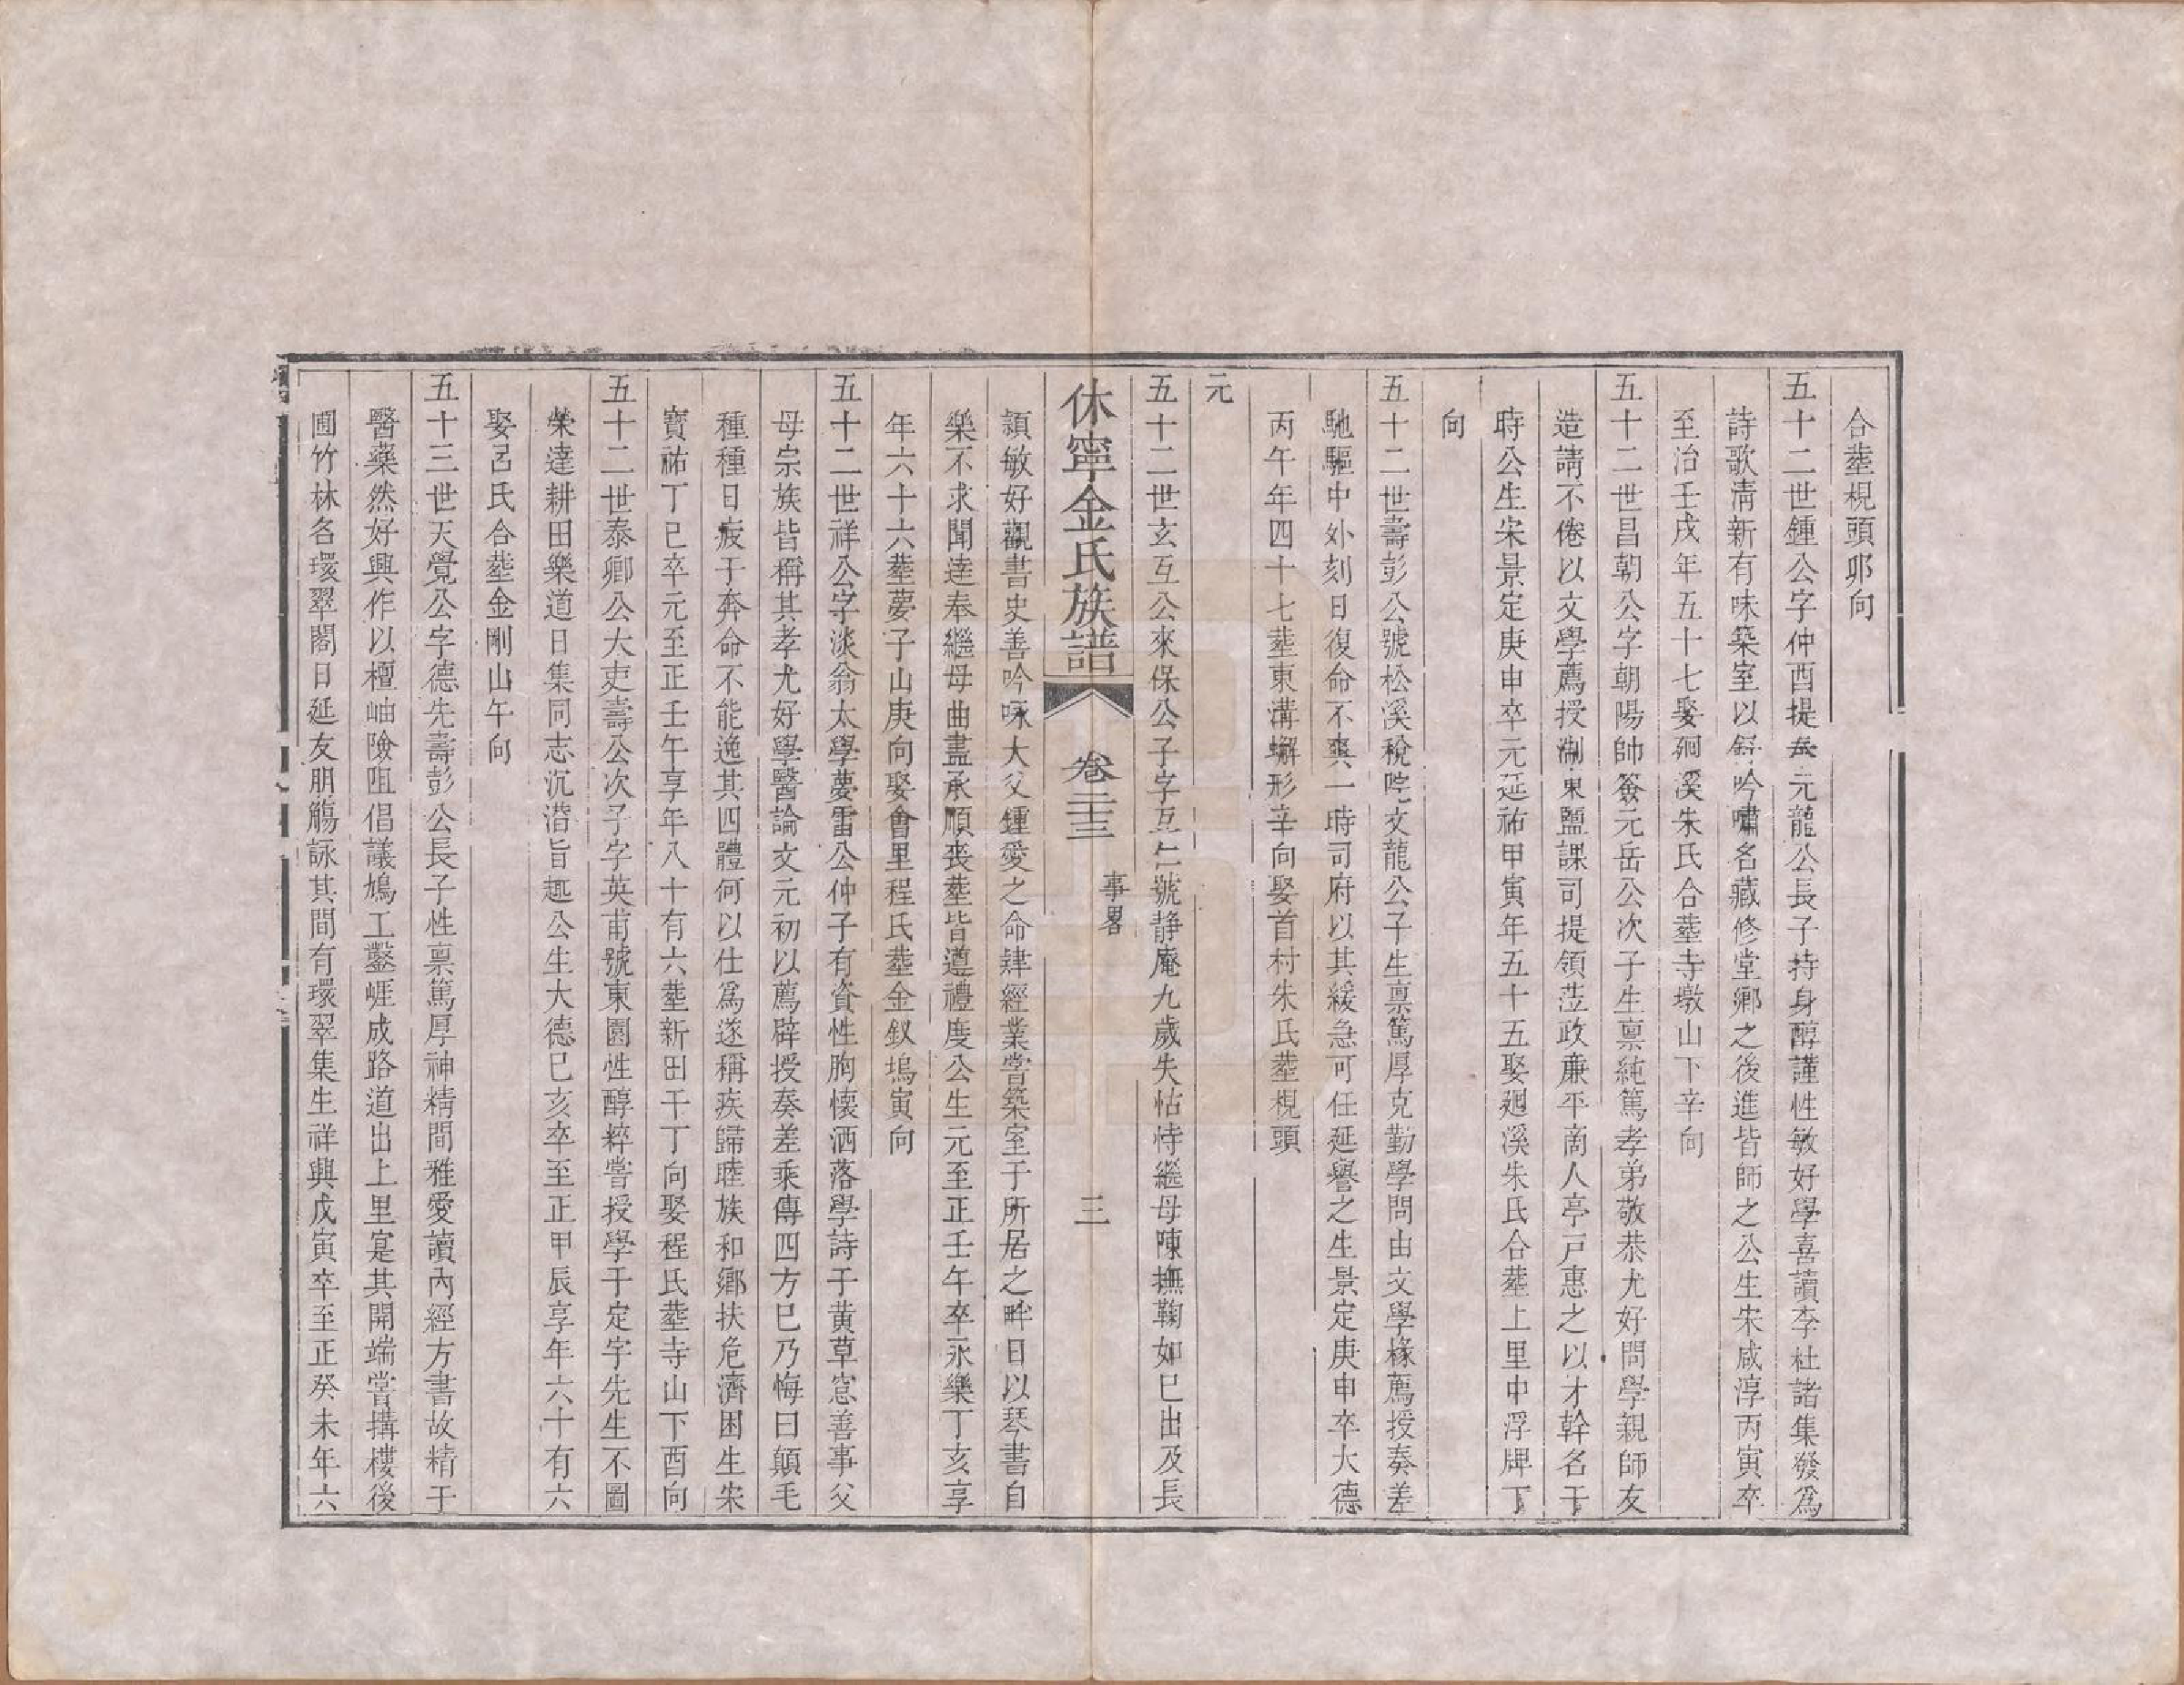 合塟梘頭卯向
五十二世鍾公字仲酉提兵元龍公長子持身醇謹性敏好學喜讀李杜諸集發爲
詩歌清新有味築室以舒吟嘯名藏修堂鄉之後進皆師之公生宋咸淳丙寅卒
至治壬戌年五十七娶𢌞溪朱氏合塟寺墩山下辛向
五十二世昌朝公字朝陽帥簽元岳公次子生禀純篤孝弟敬恭尤好問學親師友
造請不倦以文學薦授淛東鹽課司提領莅政廉平商人亭戸惠之以才幹名于
時公生宋景定庚申卒元延祐甲寅年五十五娶𢌞溪朱氏合塟上里中浮牌丁
向
五十二世壽彭公號松溪稅院文龍公子生禀篤厚克勤學問由文學椽薦授奏差
馳驅中外刻日復命不爽一時司府以其緩急可任延譽之生景定庚申卒大德
丙午年四十七塟東溝蠏形辛向娶首村朱氏塟梘頭
元
五十二世玄互公來保公子字互仁號静庵九歲失怙恃繼母陳撫鞠如已出及長
休寧金氏族譜 卷二十三 事畧 三
頴敏好觀書史善吟咏大父鍾愛之命肆經業嘗築室于所居之畔日以琴書自
樂不求聞逹奉繼母曲盡承順喪塟皆遵禮度公生元至正壬午卒永樂丁亥享
年六十六塟夢子山庚向娶會里程氏塟金釵塢寅向
五十二世祥公字淡翁太學夢雷公仲子有資性胸懷洒落學詩于黄草窓善事父
母宗族皆稱其孝尤好學醫論文元初以薦辟授奏差乘傳四方巳乃悔曰顛毛
種種日疲于奔命不能逸其四體何以仕爲遂稱疾歸睦族和鄉扶危濟困生宋
寶祐丁巳卒元至正壬午享年八十有六塟新田干丁向娶程氏塟寺山下酉向
五十二世泰卿公大吏壽公次子字英甫號東園性醇粹嘗授學于定宇先生不圖
榮達耕田樂道日集同志沉潜旨趣公生大德巳亥卒至正甲辰享年六十有六
娶呂氏合塟金剛山午向
五十三世天覺公字德先壽彭公長子性禀篤厚神精間雅愛讀內經方書故精于
醫藥然好興作以檀岫險阻倡議鳩工鑿崕成路道出上里寔其開端嘗搆樓後
圃竹林名環翠閣日延友朋觴詠其間有環翠集生祥興戊寅卒至正癸未年六